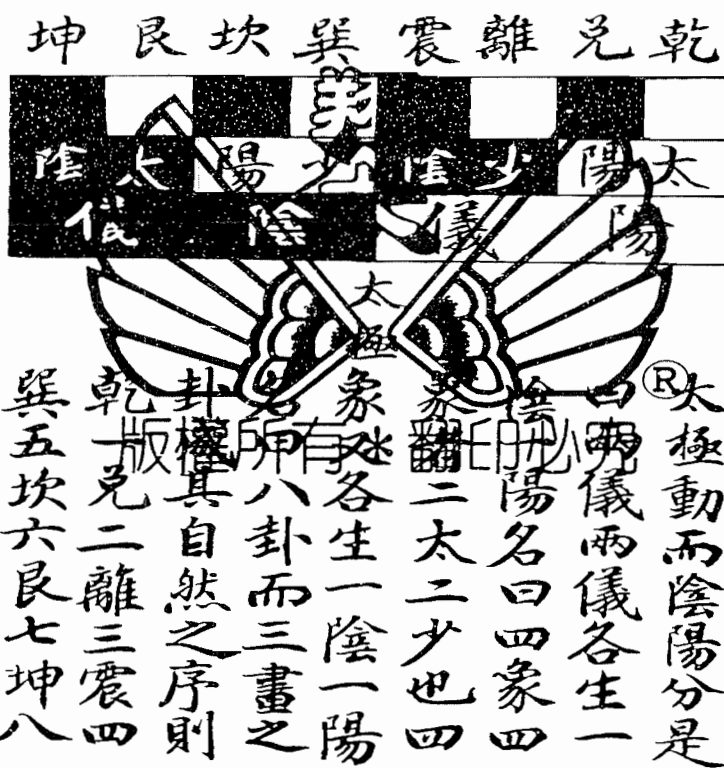 乾兌離震巽坎艮坤
太陽少陰少陽太陰
陽儀陰儀
太極
太極動而陰陽分是
曰兩儀兩儀各生一
陰一陽名曰四象四
象二太二少也四
象又各生一陰一陽
名曰八卦而三畫之
卦具自然之序則
乾一兌二離三震四
巽五坎六艮七坤八
版權所有 翻印必究
®